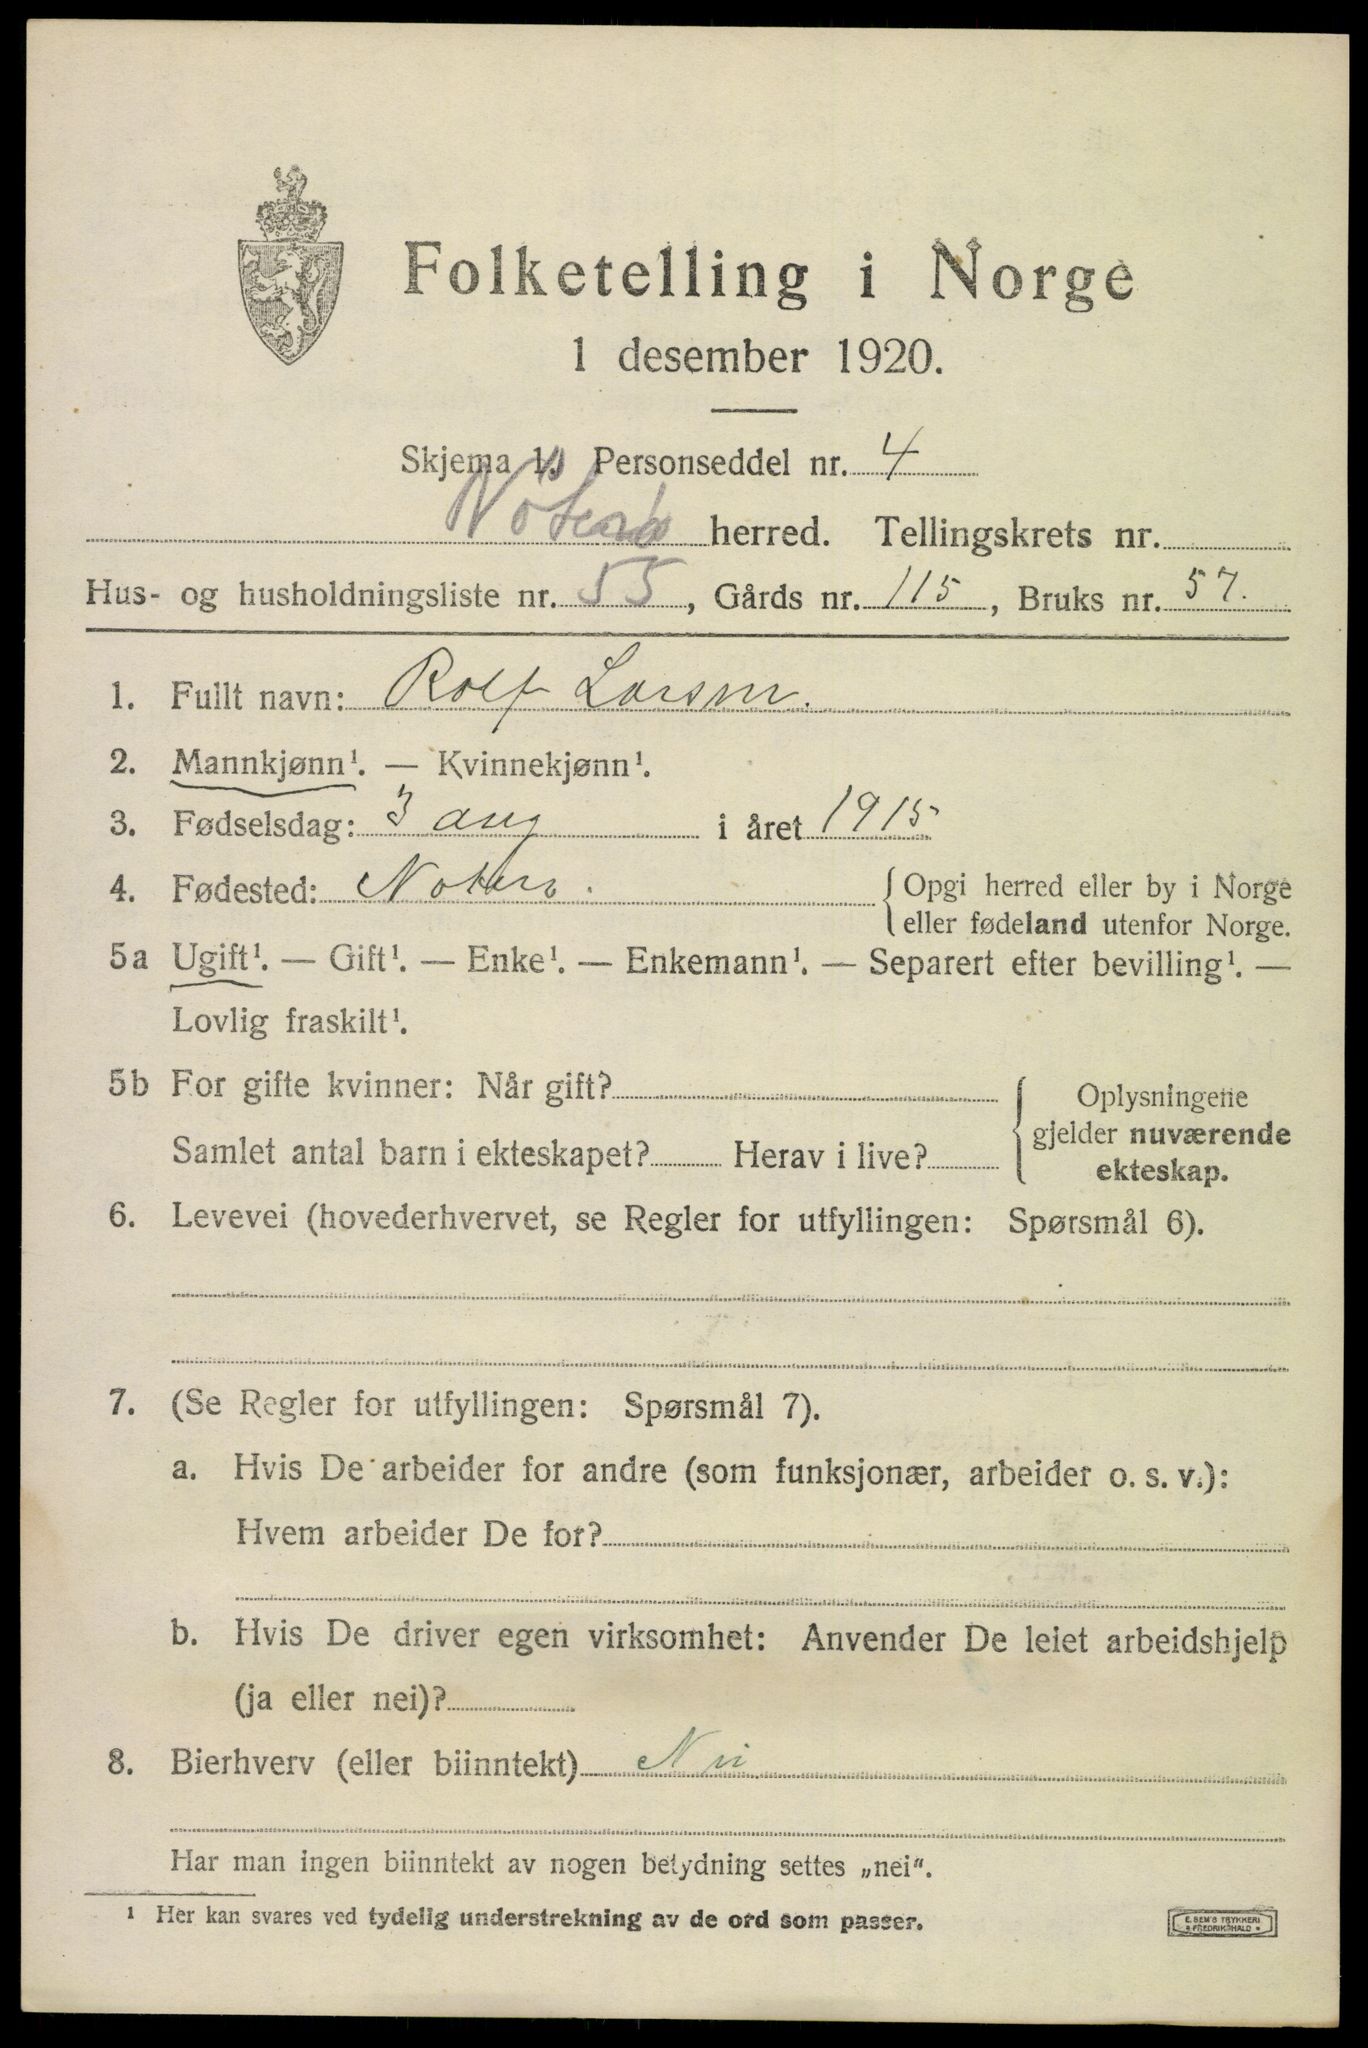 Folketelling i Norge
1 desember 1920.
Skjema 1. Personseddel nr. 4
Nøterø herred. Tellingskrets nr.
Hus- og husholdningsliste nr. 55, Gårds nr. 115, Bruks nr. 57.
1. Fullt navn: Rolf Larsen.
2. Mannkjønn¹. — Kvinnekjønn¹.
3. Fødselsdag: 3 aug i året 1915
4. Fødested: Noterø. {Opgi herred eller by i Norge
eller fødeland utenfor Norge.
5a Ugift¹. — Gift¹. — Enke¹. — Enkemann¹. — Separert efter bevilling¹. —
Lovlig fraskilt¹.
5b For gifte kvinner: Når gift? {Oplysningene
gjelder nuværende
Samlet antal barn i ekteskapet? Herav i live?
ekteskap.
6. Levevei (hovederhvervet, se Regler for utfyllingen: Spørsmål 6).
7. (Se Regler for utfyllingen: Spørsmål 7).
a. Hvis De arbeider for andre (som funksjonær, arbeider o. s. v.):
Hvem arbeider De for?
b. Hvis De driver egen virksomhet: Anvender De leiet arbeidshjelp
(ja eller nei)?
8. Bierhverv (eller biinntekt) Nei
Har man ingen biinntekt av nogen betydning settes „nei“.
¹ Her kan svares ved tydelig understrekning av de ord som passer.
E. SEM'S TRYKKERI
FREDRIKSHALD